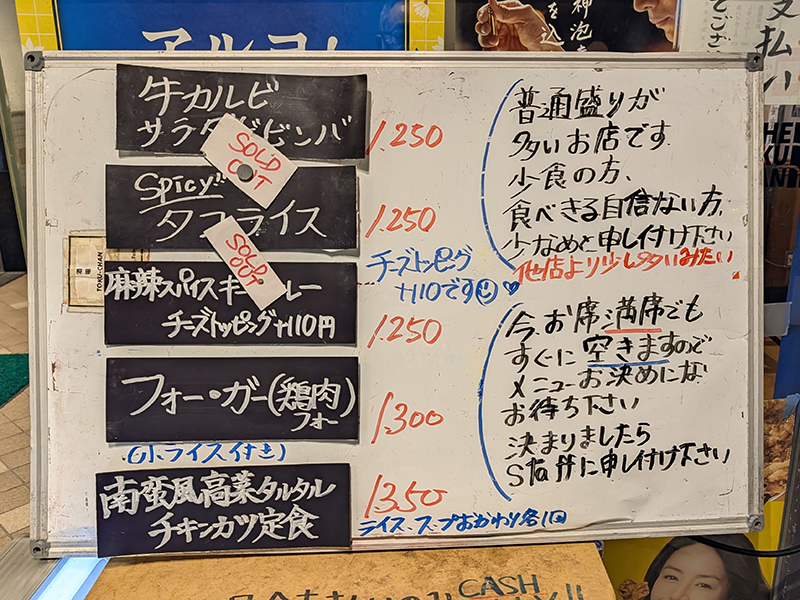 牛カルビ
サラダビビンバ
1.250
SOLD
OUT
Spicy!!
タコライス
1.250
SOLD
OUT
チーズトッピング
+110です
麻辣スパイスキーマカレー
チーズトッピング+110円
1.250
フォー・ガー(鶏肉)
フォー
1.300
(小ライス付き)
南蛮風高菜タルタル
チキンカツ定食
1350
ライス、スープおかわり各1回
普通盛りが
多いお店です
少食の方、
食べきる自信ない方、
少なめと申し付け下さい
他店より少し多いみたい
今、お席満席でも
すぐに空きますので
メニューお決めにな
お待ち下さい
決まりましたら
Staffに申し付け下さい
TORU-CHAN
神泡
を込
支払い
CASH